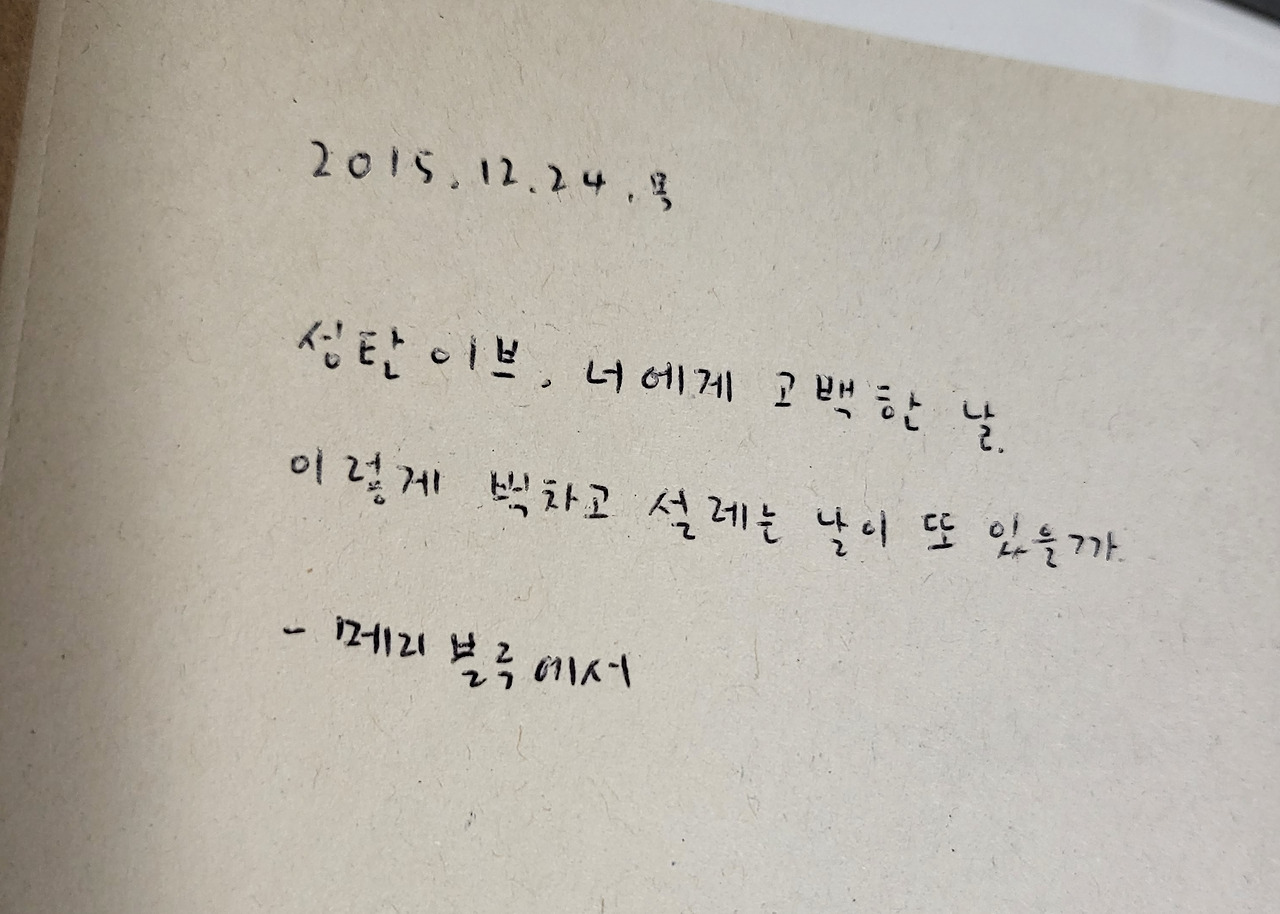 2015.12.24.목
성탄 이브, 너에게 고백한 날.
이렇게 벅차고 설레는 날이 또 있을까
- 메리 블루에서